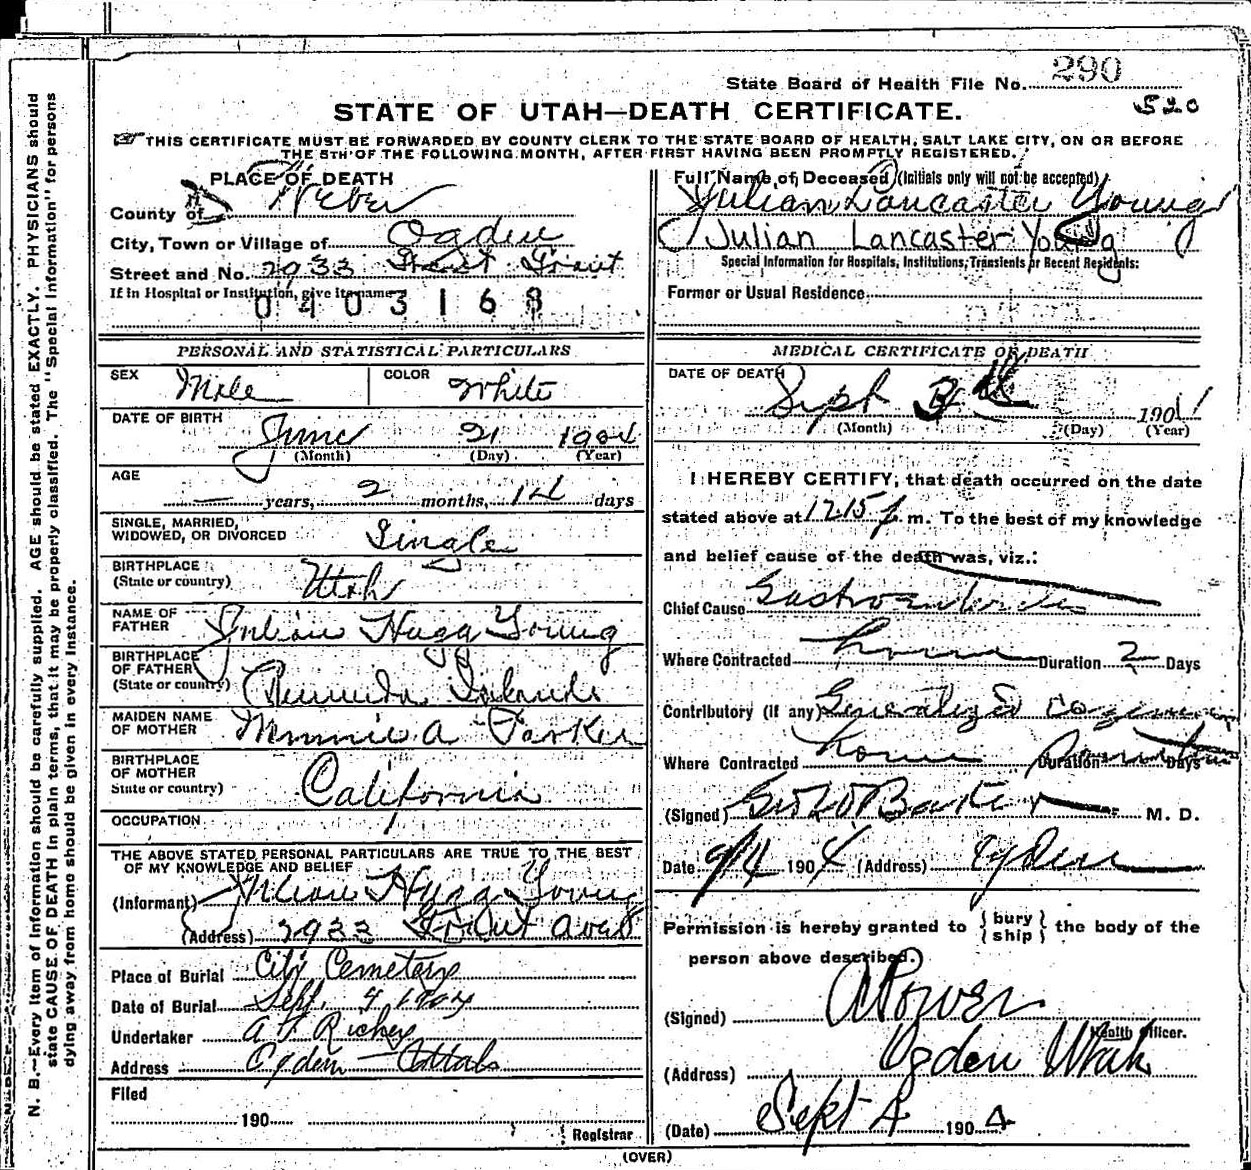 State Board of Health File No. 290
STATE OF UTAH—DEATH CERTIFICATE.
520
THIS CERTIFICATE MUST BE FORWARDED BY COUNTY CLERK TO THE STATE BOARD OF HEALTH, SALT LAKE CITY, ON OR BEFORE
THE 5TH OF THE FOLLOWING MONTH, AFTER FIRST HAVING BEEN PROMPTLY REGISTERED.
PLACE OF DEATH
County of Weber
City, Town or Village of Ogden
Street and No. 2933 Grant
If in Hospital or Institution, give its name
0403168
Full Name of Deceased (Initials only will not be accepted)
Julian Lancaster Young
Julian Lancaster Young
Special Information for Hospitals, Institutions, Transients or Recent Residents:
Former or Usual Residence
PERSONAL AND STATISTICAL PARTICULARS
SEX Male COLOR White
DATE OF BIRTH
June 21 1904
(Month) (Day) (Year)
AGE
— years, 2 months, 14 days
SINGLE, MARRIED,
WIDOWED, OR DIVORCED Single
BIRTHPLACE
(State or country) Utah
NAME OF
FATHER Julian Hugg Young
BIRTHPLACE
OF FATHER
(State or country) Bermuda Islands
MAIDEN NAME
OF MOTHER Minnie A Parker
BIRTHPLACE
OF MOTHER
State or country) California
OCCUPATION
THE ABOVE STATED PERSONAL PARTICULARS ARE TRUE TO THE BEST
OF MY KNOWLEDGE AND BELIEF
(Informant) Julian Hugg Young
(Address) 2933 Grant Ave
Place of Burial City Cemetery
Date of Burial Sept. 4, 1904
Undertaker Richey
Address Ogden Utah
Filed
190
Registrar
MEDICAL CERTIFICATE OF DEATH
DATE OF DEATH
Sept 1904
(Month) (Day) (Year)
I HEREBY CERTIFY, that death occurred on the date
stated above at 12.15 p.m. To the best of my knowledge
and belief cause of the death was, viz.:
Chief Cause
Where Contracted home Duration 2 Days
Contributory (if any) Generalized
Where Contracted home Duration Days
(Signed) M. D.
Date 9/4 1904 (Address) Ogden
Permission is hereby granted to {bury
ship} the body of the
person above described.
(Signed)
Health Officer.
(Address) Ogden Utah
(Date) Sept 4 1904
(OVER)
N. B.—Every item of information should be carefully supplied. AGE should be stated EXACTLY. PHYSICIANS should
state CAUSE OF DEATH in plain terms, that it may be properly classified. The "Special Information" for persons
dying away from home should be given in every instance.